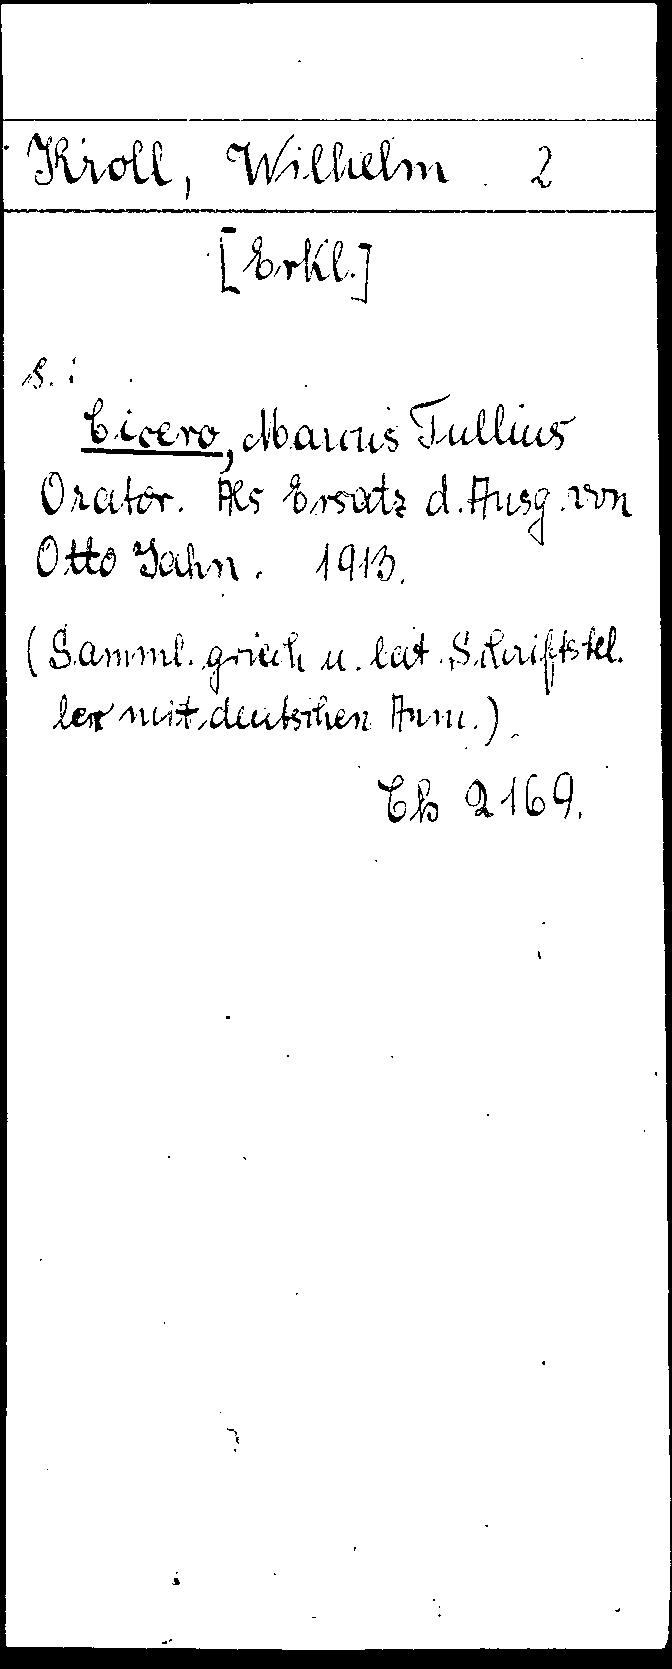 Kroll, Wilhelm 2
[Erkl.]
s.:
Cicero, Marcus Tullius
Orator. Als Ersatz d. Ausg. von
Otto Jahn. 1913.
(Samml. griech u. lat. Schriftstel.
ler mit deutschen Anm.)
Cb 2169.